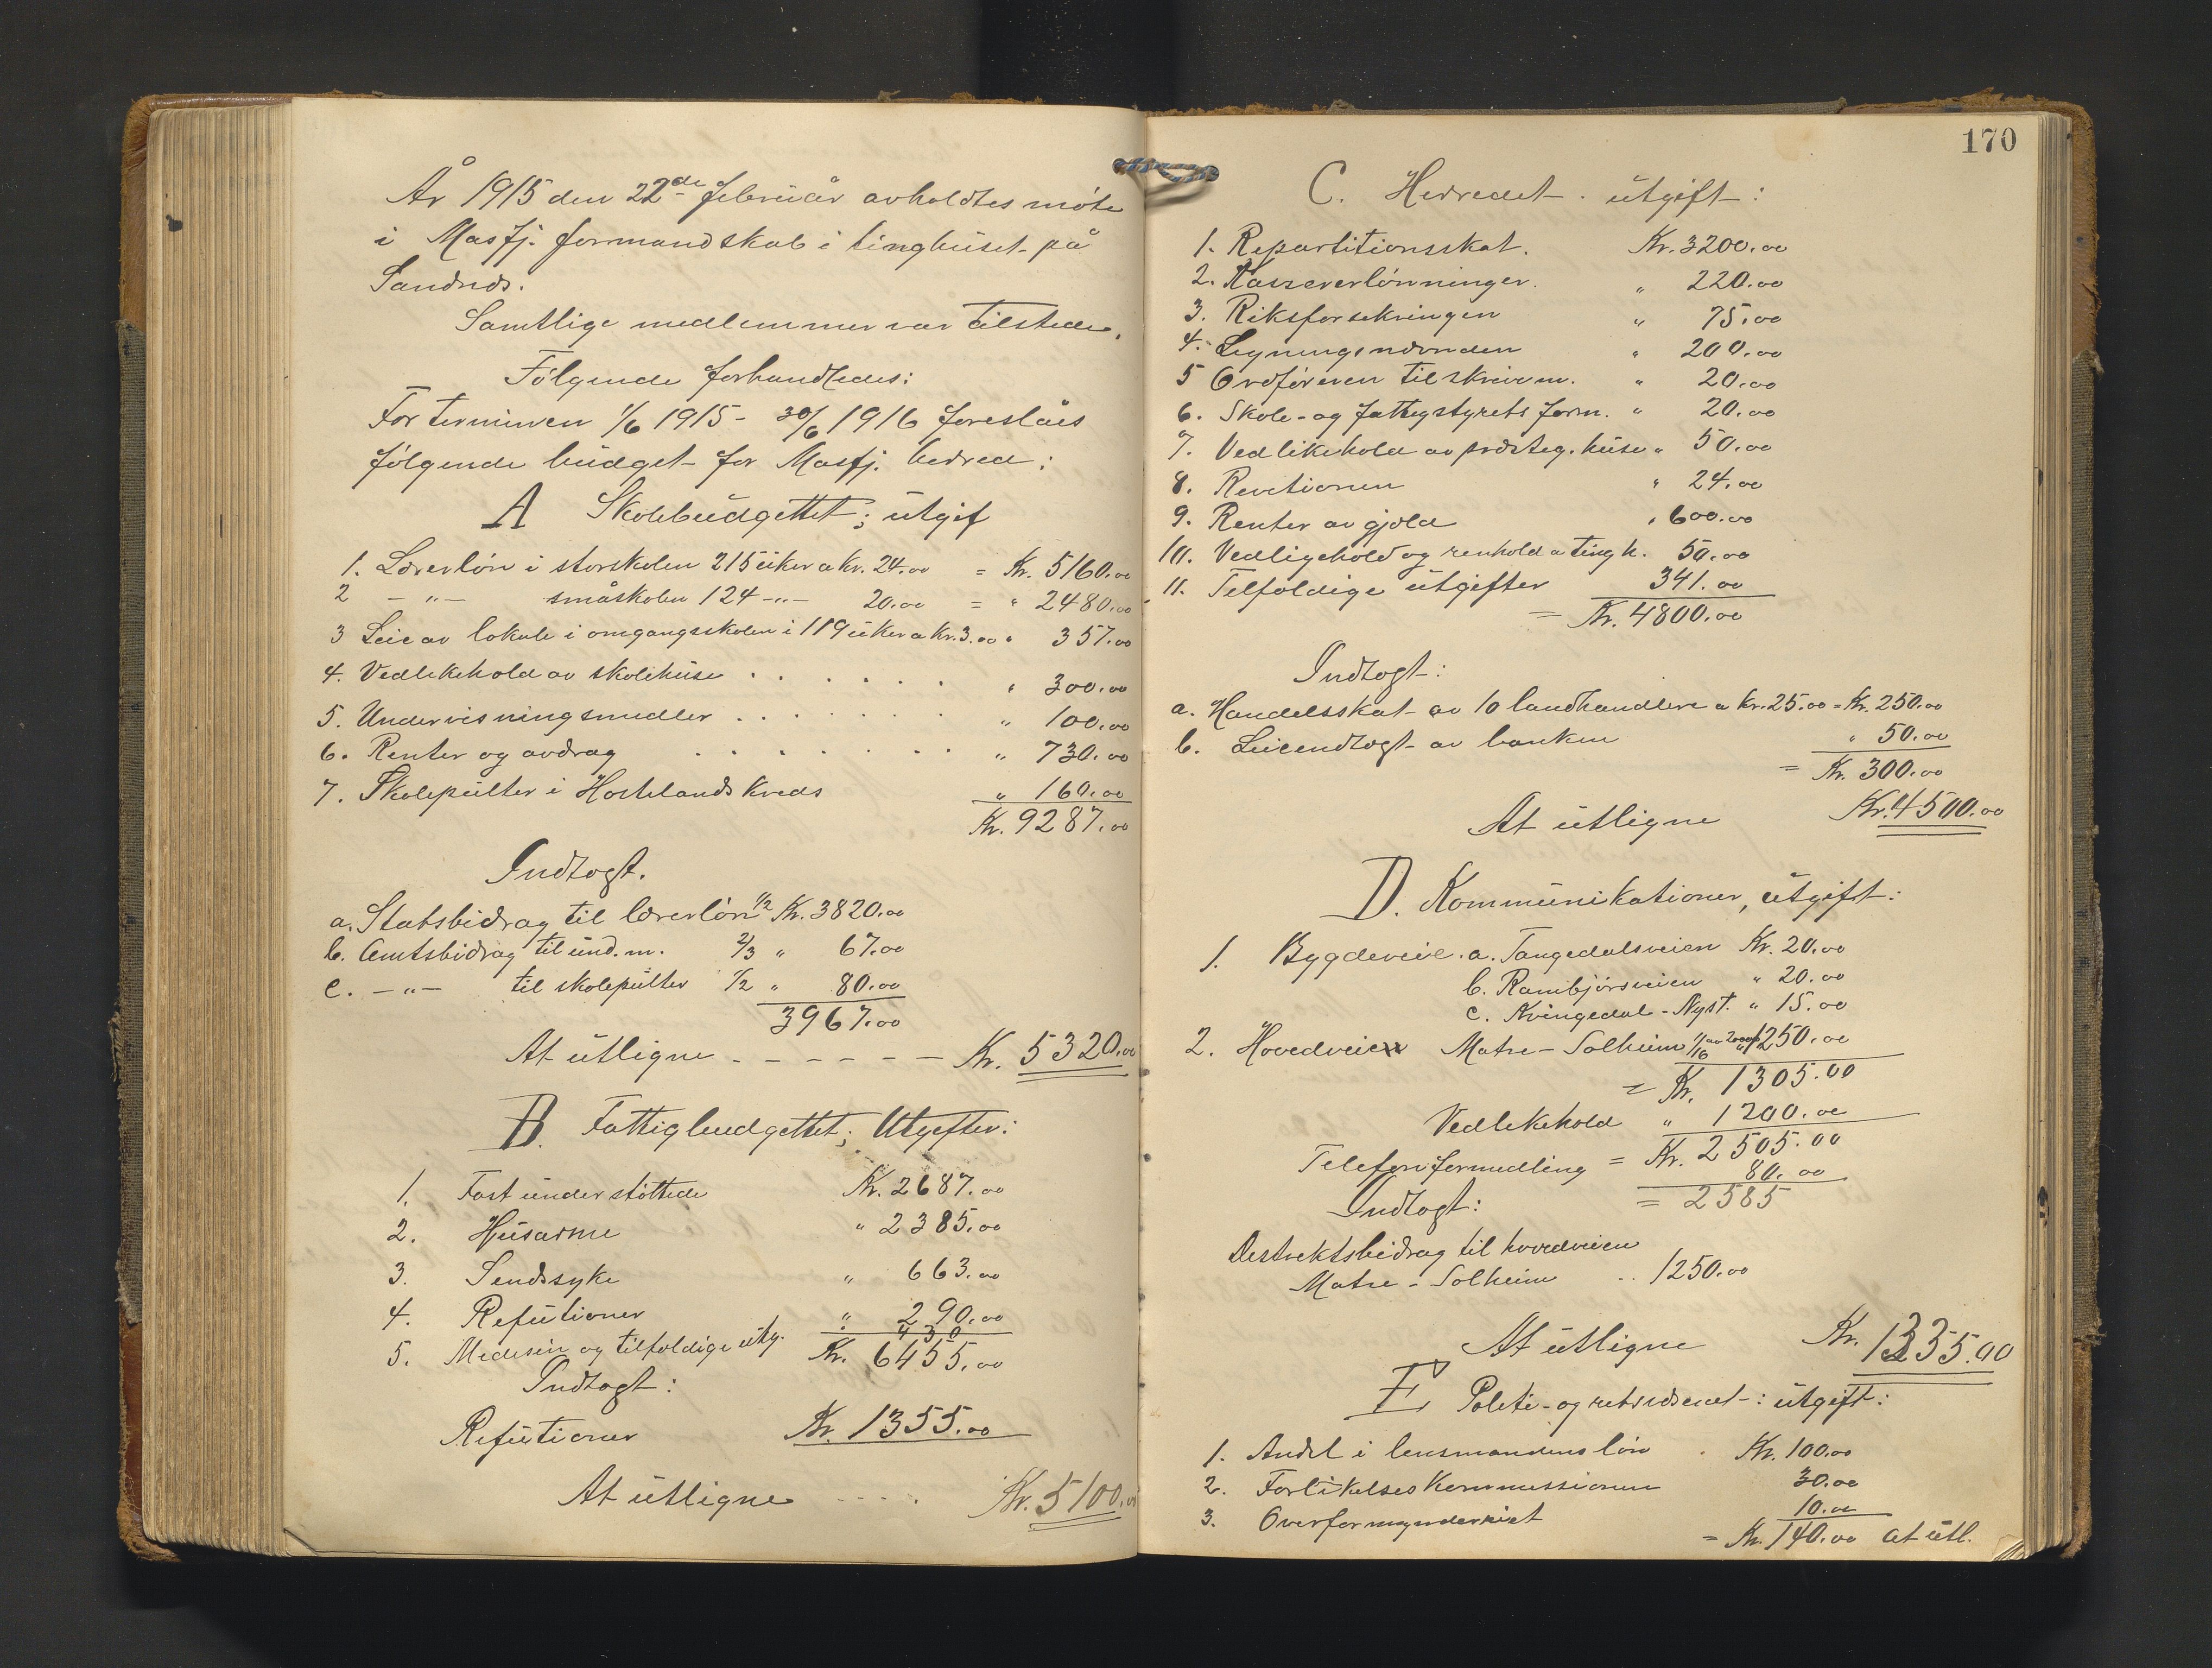 År 1915 den 22de februar avholdtes møte
i Masfj. formandskab i tinghuset på
Sandnes.
Samtlige medlemmer var tilstede.
Følgende forhandledes:
For terminen 1/6 1915 - 30/6 1916 foreslåes
følgende budget for Masfj. herred:
A Skolebudgettet; utgif
1. Lærerløn i storskolen 215 uker a kr. 24.00 = Kr. 5160.00
2 -"- småskolen 124 -"- 20.00 = " 2480.00
3 Leie av lokale i omgangsskolen i 119 uker a kr. 3.00 " 357.00
4. Vedlikehold av skolehuse . . . . . . " 300.00
5. Undervisningsmedler . . . . . . . " 100.00
6. Renter og avdrag . . . . . . . . " 730.00
7. Skolepulter i Hostelands kreds " 160.00
Kr. 9287.00
Indtægt.
a. Statsbidrag til lærerløn 1/2 Kr. 3820.00
b. Amtsbidrag til und.m. 2/3 " 67.00
c. -"- til skolepulter 1/2 " 80.00
3967.00
At utligne - - - - - - Kr. 5320.00
B. Fattigbudgettet; Utgifter:
1. Fast understøttede Kr. 2687.00
2. Husarme " 2385.00
3. Sindssyke " 663.00
4. Refutioner " 290.00
5. Medisin og tilfældige utg. " 430
Kr. 6455.00
Indtægt:
Refutioner Kr. 1355.00
At utligne - - - . Kr. 5100.00
170
C. Herredet . utgift:
1. Repartitionsskat. Kr. 3200.00
2. Kassererlønninger. " 220.00
3. Riksforsekringen " 75.00
4. Ligningsnævnden " 200.00
5 Ordføreren til skrivem. " 20.00
6. Skole- og fattigstyrets form. " 20.00
7. Vedlikehold av præsteg. huse " 50.00
8. Revitionen " 24.00
9. Renter av gjæld " 600.00
10. Vedligehold og renhold a tingh. 50.00
11. Tilfældige utgifter 341.00
= Kr. 4800.00
Indtægt:
a. Handelsskat av 10 landhandlere a kr. 25.00 = Kr. 250.00
b. Leieindtægt av banken " 50.00
= Kr. 300.00
At utligne Kr. 4500.00
D. Kommunikationer, utgift:
1. Bygdeveie. a. Tangedalsveien Kr. 20.00
b. Rambjørsveien " 20.00
c. Kvingedal - Nyst. " 15.00
2. Hovedveie Matre - Solheim 1/16 av 20000 " 1250.00
= Kr. 1305.00
Vedlikehold " 1200.00
= Kr. 2505.00
Telefonformidling 80.00
Indtægt: = 2585
Destriktsbidrag til hovedveien
Matre - Solheim .. 1250.00
At utligne Kr. 1335.00
E Politi- og retsvæsenet: utgift:
1. Andel i lensmandens løn . Kr. 100.00
2. Forlikelseskommissionen 30.00
3. Overformynderiet 10.00
= Kr. 140.00 at utl.